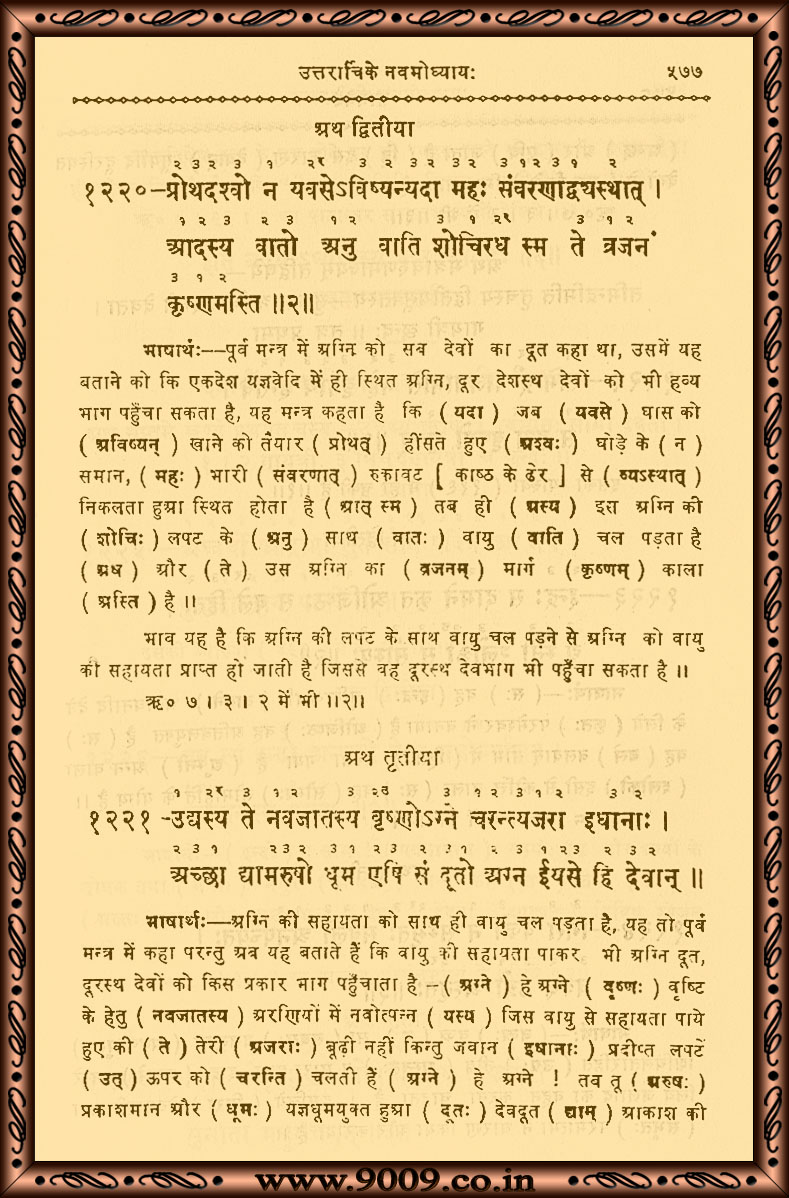 उत्तरार्चिके नवमोध्यायः ५७७
अथ द्वितीया
२ ३ २ ३ १ २र ३ २ ३ २ ३ २ ३ १ २ ३ १ २
१२२०–प्रोथदश्वो न यवसेऽविष्यन्यदा महः संवरणाद्व्यस्थात् ।
१ २ ३ २ ३ १ २ ३ १ २र ३ १ २
आदस्य वातो अनु वाति शोचिरध स्म ते व्रजनं
३ १ २
कृष्णमस्ति ॥२॥
भाषार्थः––पूर्व मन्त्र में अग्नि को सब देवों का दूत कहा था, उसमें यह
बताने को कि एकदेश यज्ञवेदि में ही स्थित अग्नि, दूर देशस्थ देवों को भी हव्य
भाग पहुँचा सकता है, यह मन्त्र कहता है कि (यदा) जब (यवसे) घास को
(अविष्यन्) खाने को तैयार (प्रोथत्) हींसते हुए (अश्वः) घोड़े के (न)
समान, (महः) भारी (संवरणात्) रुकावट [काष्ठ के ढेर] से (व्यऽस्थात्)
निकलता हुआ स्थित होता है (आत् स्म) तब ही (अस्य) इस अग्नि की
(शोचिः) लपट के (अनु) साथ (वातः) वायु (वाति) चल पड़ता है
(अध) और (ते) उस अग्नि का (व्रजनम्) मार्ग (कृष्णम्) काला
(अस्ति) है ॥
भाव यह है कि अग्नि की लपट के साथ वायु चल पड़ने से अग्नि को वायु
की सहायता प्राप्त हो जाती है जिससे वह दूरस्थ देवभाग भी पहुँचा सकता है ॥
ऋ० ७ । ३ । २ में भी ॥२॥
अथ तृतीया
१ २र ३ १ २ ३ २उ ३ १ २ ३ १ २ ३ २
१२२१ –उद्यस्य ते नवजातस्य वृष्णोऽग्ने चरन्त्यजरा इधानाः ।
२ ३ १ ३ २ ३ २ ३ १ २ ३ २ ३ १ २ ३ १ २३ २ ३ २
अच्छा द्यामरुषो धूम एषि सं दूतो अग्न ईयसे हि देवान् ॥
भाषार्थः––अग्नि की सहायता को साथ ही वायु चल पड़ता है, यह तो पूर्व
मन्त्र में कहा परन्तु अब यह बताते हैं कि वायु की सहायता पाकर भी अग्नि दूत,
दूरस्थ देवों को किस प्रकार भाग पहुँचाता है –(अग्ने) हे अग्ने (वृष्णः) वृष्टि
के हेतु (नवजातस्य) अरणियों में नवोत्पन्न (यस्य) जिस वायु से सहायता पाये
हुए की (ते) तेरी (अजराः) बूढ़ी नहीं किन्तु जवान (इधानाः) प्रदीप्त लपटें
(उत्) ऊपर को (चरन्ति) चलती हैं (अग्ने) हे अग्ने ! तब तू (अरुषः)
प्रकाशमान और (धूमः) यज्ञधूमयुक्त हुआ (दूतः) देवदूत (द्याम्) आकाश की
www.9009.co.in